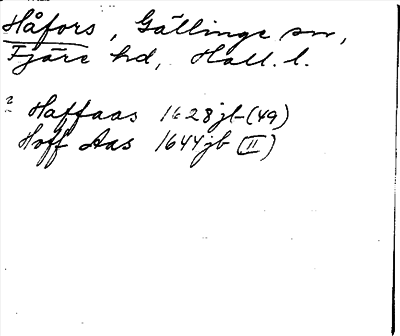 Håfors, Gällinge sn,
Fjäre hd, Hall. l.
? Haffaas 1628 jb (49)
Hoff Aas 1644 jb (II)